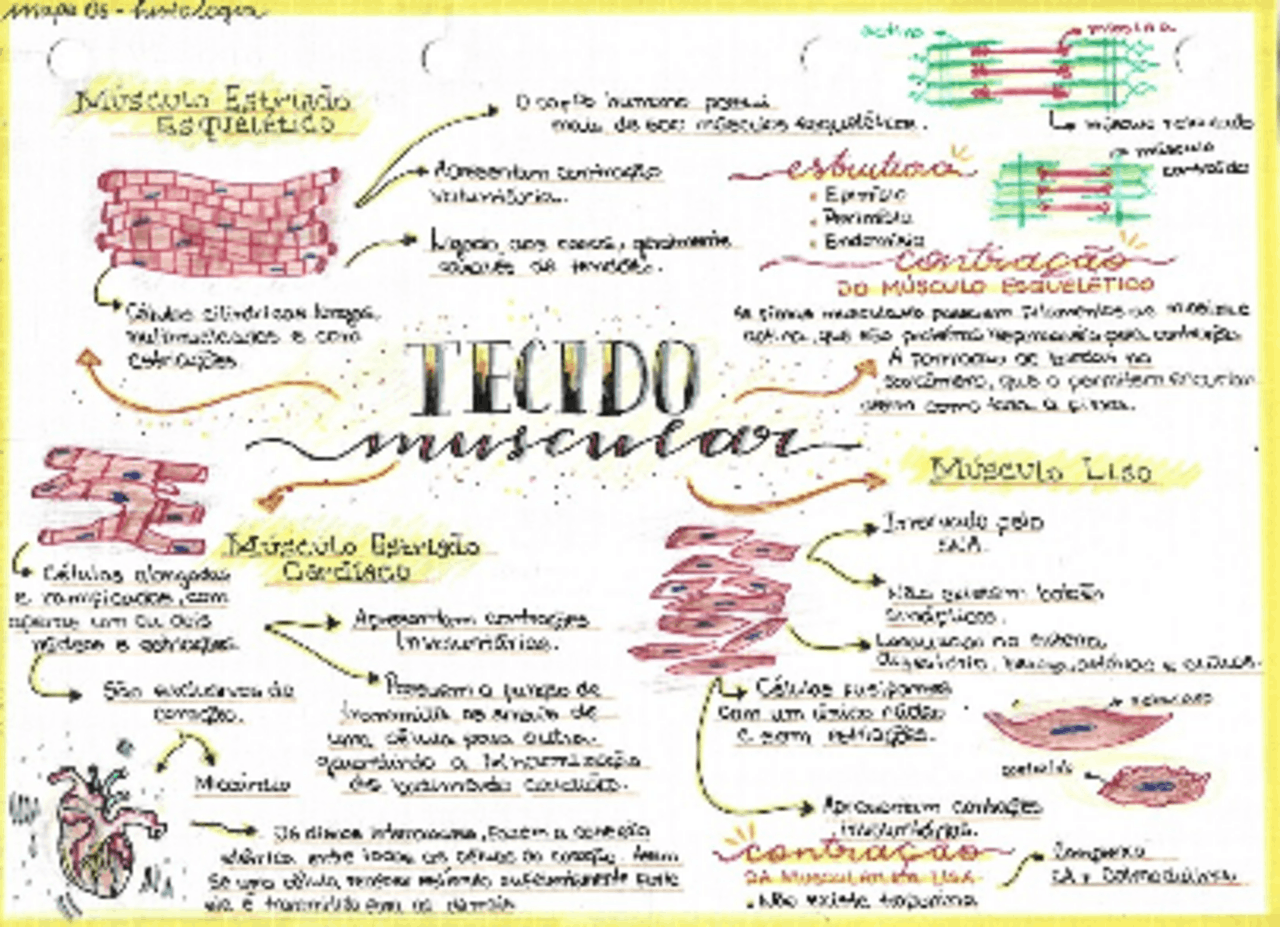 mapa 03 - histologia
Músculo Estriado
Esquelético
O corpo humano possui
mais de 600 músculos esqueléticos.
Apresentam contração
voluntária.
Ligado aos ossos, geralmente
através de tendões.
Células cilíndricas longas,
multinucleadas e com
estriações.
actina
miosina
músculo relaxado
músculo
contraído
estrutura
Epimísio
Perimísio
Endomísio
contração
DO MÚSCULO ESQUELÉTICO
musculares possuem filamentos de miosina e
actina, que são proteínas responsáveis pela contração.
A formação de bandas no
sarcômero, que o permitem encurtar
TECIDO
muscular
Músculo Estriado
Cardíaco
Células alongadas
e ramificadas, com
apenas um ou dois
núcleos e estriações.
São exclusivas do
coração.
Miocárdio
Apresentam contrações
Involuntárias.
Possuem a função de
transmitir os sinais de
uma célula para outra.
garantindo a
Os discos intercalares, fazem a conexão
elétrica entre todas as células do coração. Assim
se uma célula, receber estímulo suficientemente forte
ele é transmitido para as demais
Músculo Liso
Inervado pelo
SNA.
Não existem botões
sinápticos.
Localizado no sistema
digestório,
Células fusiformes
com um único núcleo
e sem estriações.
relaxado
contraído
Apresentam contrações
involuntárias.
contração
DA MUSCULATURA LISA
Não existe troponina
Complexo
CA + Calmodulina